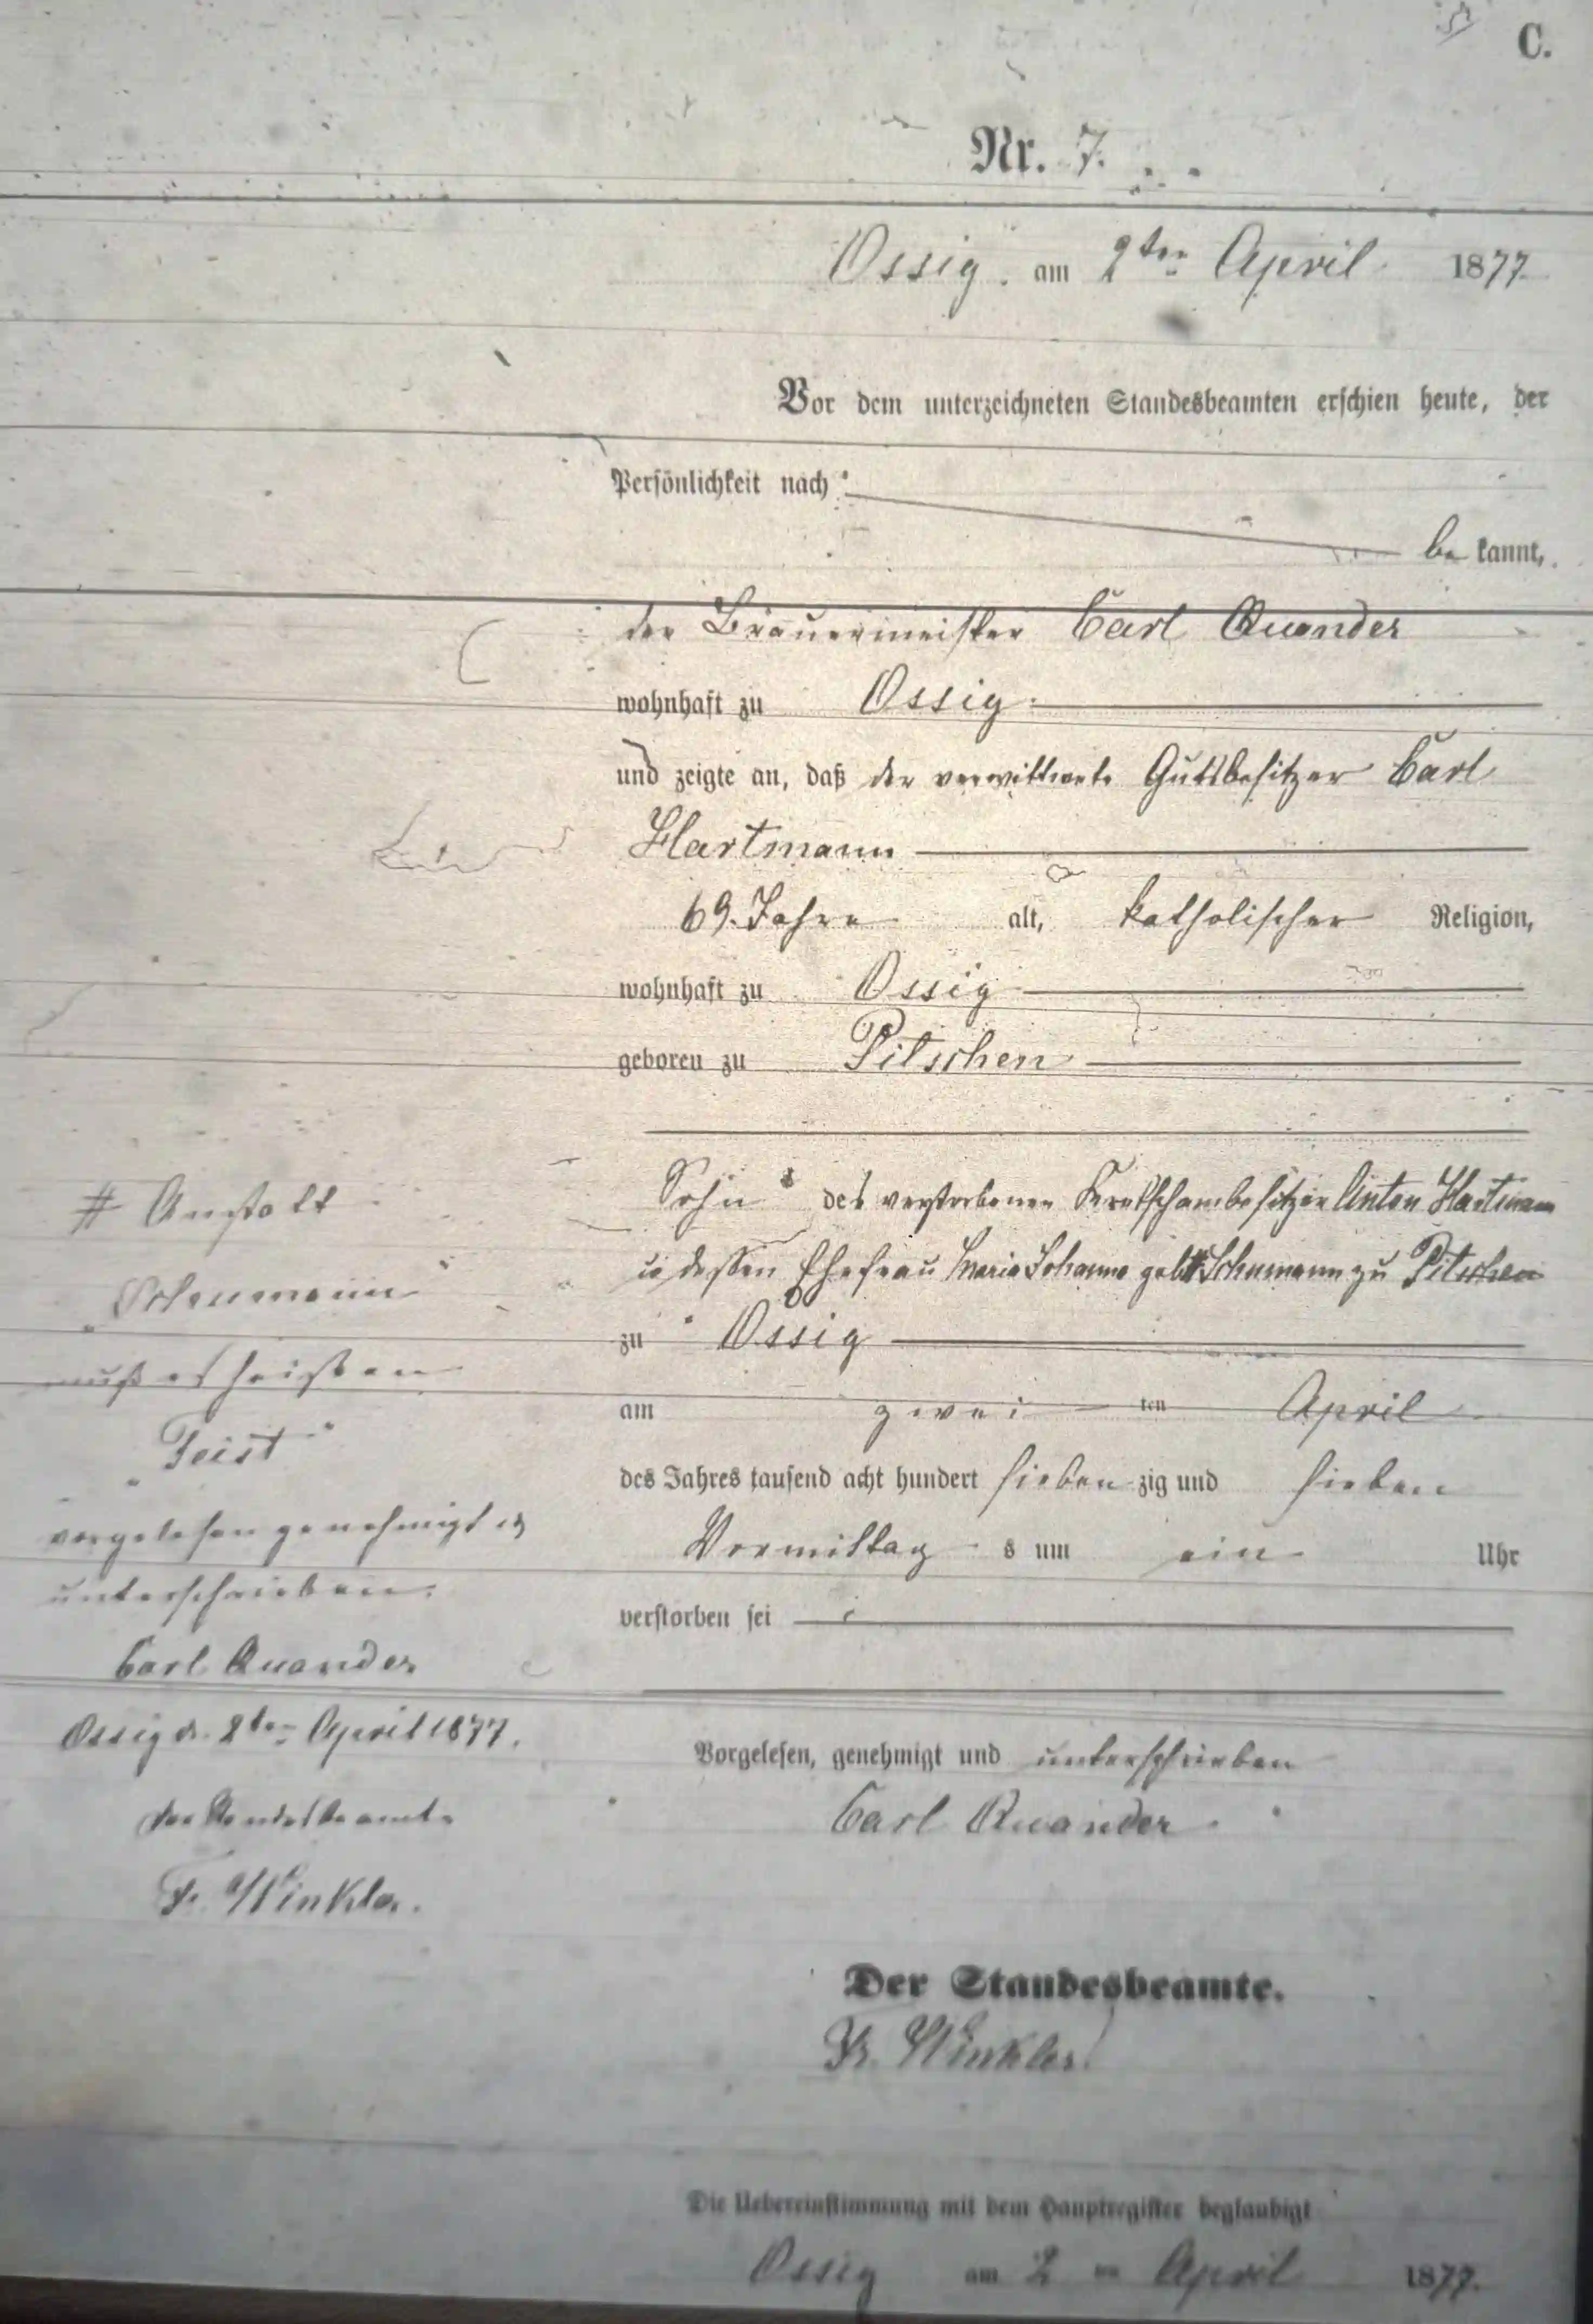 C.
Nr. 7.
Ossig. am 2ten April 1877.
Vor dem unterzeichneten Standesbeamten erschien heute, der
Persönlichkeit nach
be kannt,
der Brauermeister Carl Quander
wohnhaft zu Ossig.
und zeigte an, daß der verwittwete Gutsbesitzer Carl
Hartmann
69. Jahre alt, katholischer Religion,
wohnhaft zu Ossig
geboren zu Pitschen
Sohn des verstorbenen Kretschambesitzer Anton Hartmann
u dessen Ehefrau Maria Johanna geb # Schumann zu Pitschen
zu Ossig
am zwei ten April
des Jahres tausend acht hundert sieben zig und sieben
Vormittag s um ein Uhr
verstorben sei
# Anstatt
„Schumann"
muß es heißen
„Geist"
vorgelesen genehmigt u
unterschrieben.
Carl Quander
Ossig d. 2ten April 1877.
der Standesbeamte
Fr. Winkler.
Vorgelesen, genehmigt und unterschrieben
Carl Quander.
Der Standesbeamte.
Fr. Winkler.
Die Uebereinstimmung mit dem Hauptregister beglaubigt
Ossig am 2 ten April 1877.